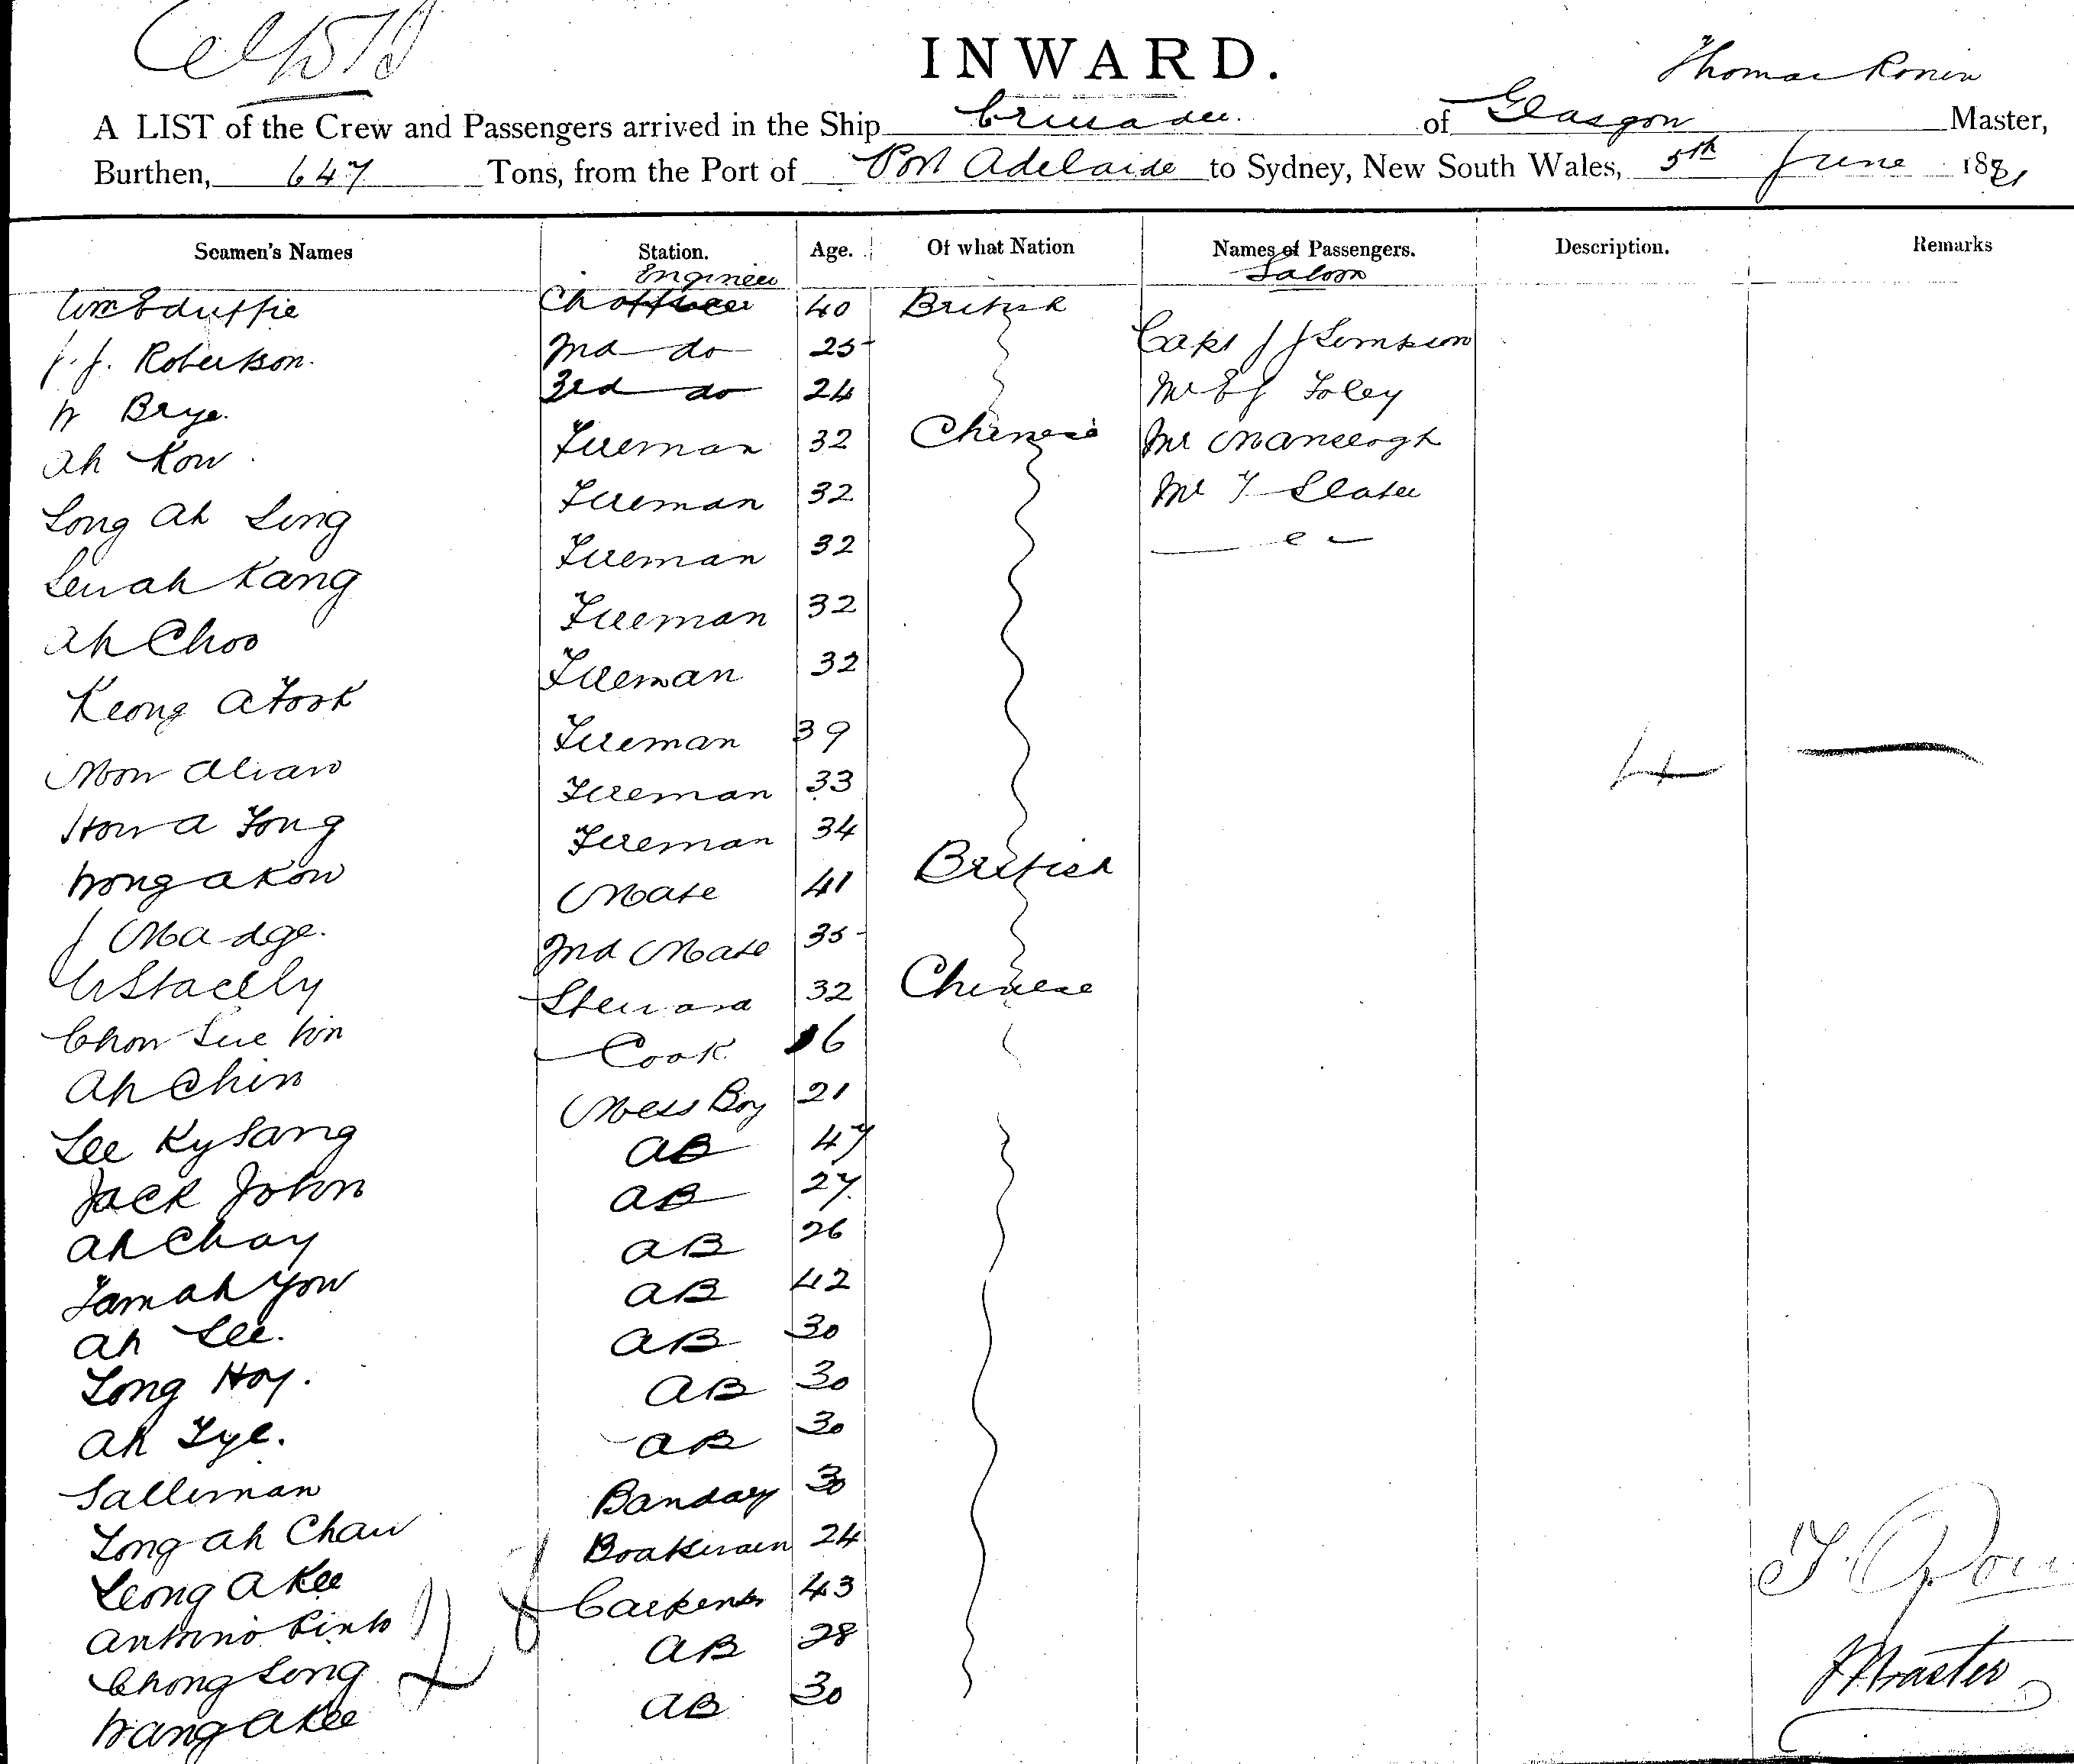 INWARD.
Thomas Ronin
A LIST of the Crew and Passengers arrived in the Ship Crusader. of Glasgow Master,
Burthen, 647 Tons, from the Port of Port Adelaide to Sydney, New South Wales, 5th June 1881
Seamen's Names Station. Age. Of what Nation Names of Passengers. Description. Remarks
Engineer Saloon
Ch officer 40 British
J. J. Robertson. 2nd do 25 Capt J J Simpson
W Brye. 3rd do 24 Mr E J Foley
Ah Kow Fireman 32 Chinese Mr
Long Ah Sing Fireman 32 Mr T Slater
Lew ah Kang Fireman 32
Ah Choo Fireman 32
Keong A Fook Fireman 32
Mow Fireman 39
How A Fong Fireman 33
Wong A Kow Fireman 34
J Madge. Mate 41 British
2nd Mate 35
Chow Sue Win Steward 32 Chinese
Ah Chin Cook 16
Lee Ky Sang Mess Boy 21
Jack John AB 47
Ah Chay AB 27
Tam ah You AB 26
Ah Lee. AB 42
Long Hoy. AB 30
Ah Tye. AB 30
Salleman AB 30
Long ah Chaw Bandary 30
Leong A Kee Boatswain 24
Antonio Pinto Carpenter 43
Chong Long AB 28
Wang A Kee AB 30
4
Master